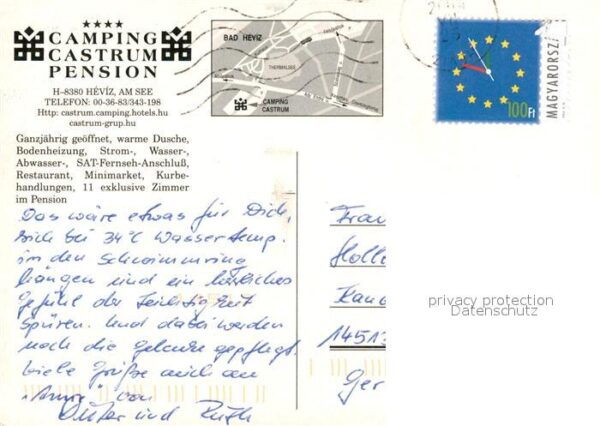 ★★★★
CAMPING
CASTRUM
PENSION
H–8380 HÉVÍZ, AM SEE
TELEFON: 00-36-83/343-198
Http: castrum.camping.hotels.hu
castrum-grup.hu
Ganzjährig geöffnet, warme Dusche,
Bodenheizung, Strom-, Wasser-,
Abwasser-, SAT-Fernseh-Anschluß,
Restaurant, Minimarket, Kurbe-
handlungen, 11 exklusive Zimmer
im Pension
BAD HÉVÍZ
THERMALSEE
CAMPING
CASTRUM
100Ft
MAGYARORSZ
Das wäre etwas für Dich,
sich bei 34°C Wassertemp.
in den Schwimmring
hängen und ein herrliches
Gefühl der Leichtigkeit
spüren. Und dabei werden
noch die Gelenke gepflegt.
Viele Grüße auch an
von
Dieter und Ruth
Frau
Holl
Kana
14513
Ger
privacy protection
Datenschutz